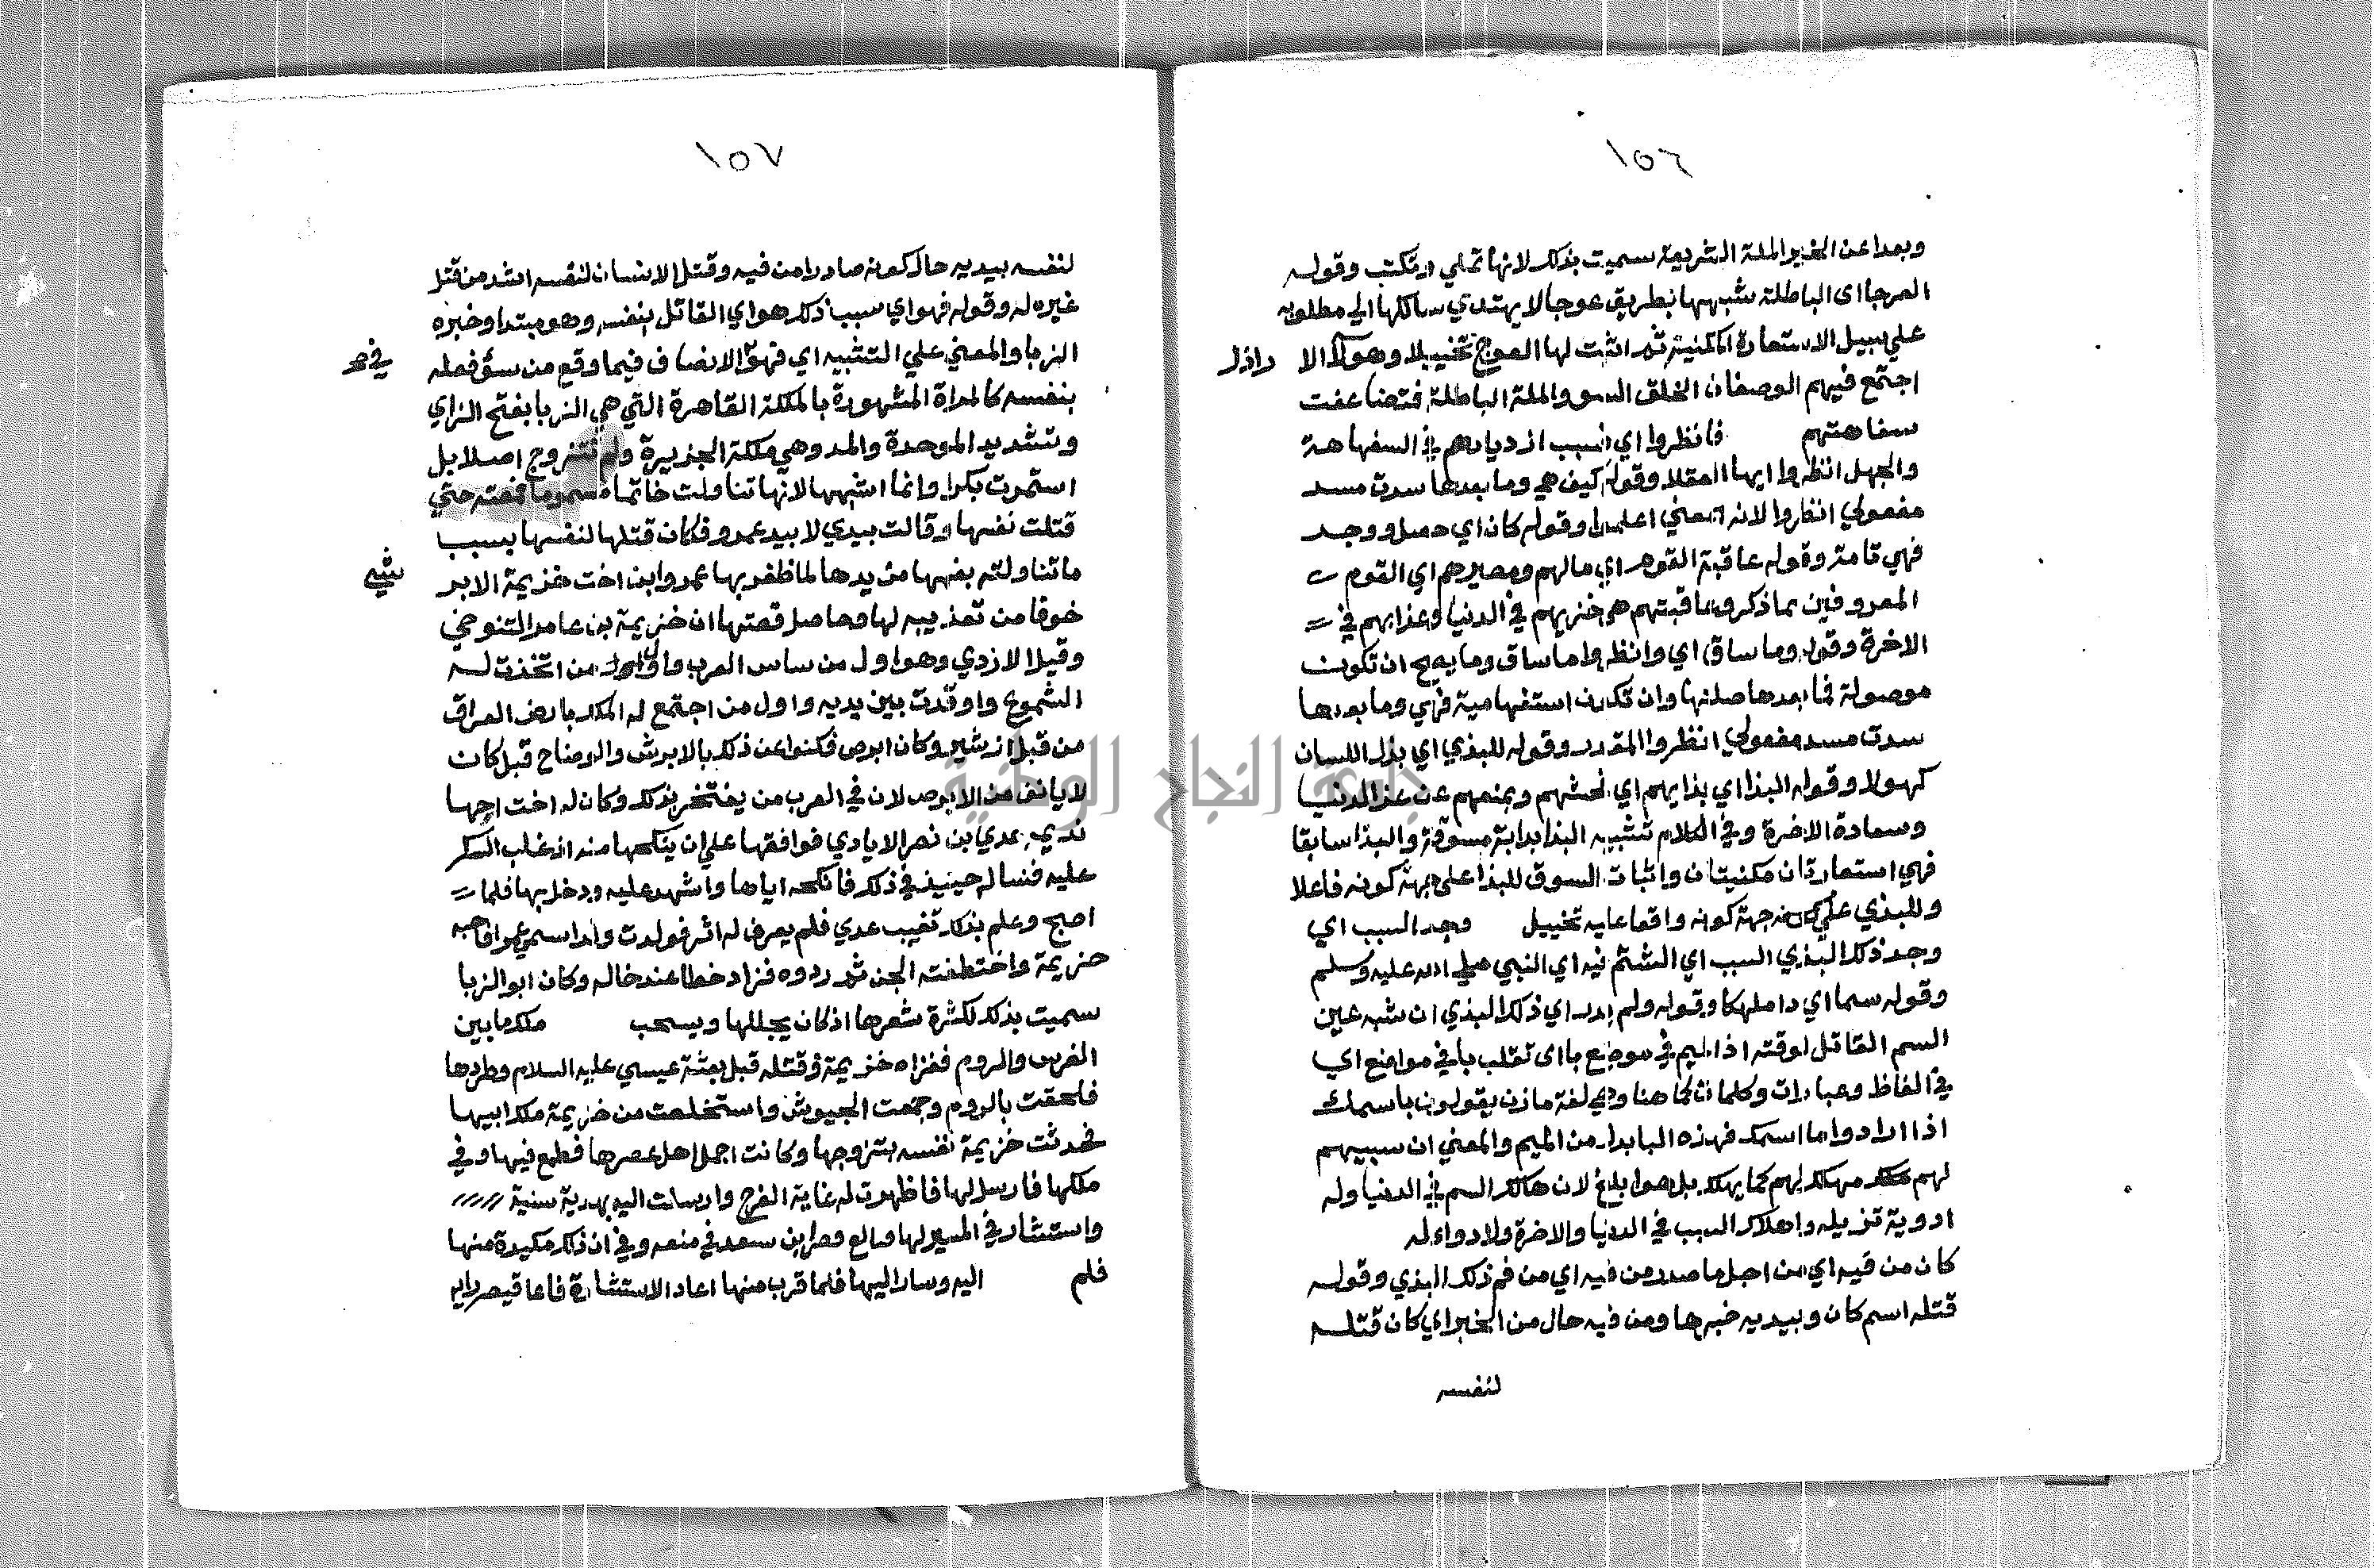 ١٥٦
وبعدا عن الخير الملة الشريعة سميت بذلك لانها تملي وتكتب وقوله
العوجا اى الباطلة شبهها بطريق عوجا لا يهتدي سالكها الي مطلوبه
علي سبيل الاستعارة المكنية ثم اثبت لها العوج تخييلا وهولاء الا
اجتمع فيهم الوصفان الخلق السو والملة الباطلة فتضاعفت
سفاهتهم فانظروا اي بسبب ازديادهم في السفاهة
والجهل انظروا ايها العقلا وقوله كيف هي وما بعدها سدت مسد
مفعولي انظروا لانه بمعني اعلموا وقوله كان اي حصل ووجد
فهي تامة وقوله عاقبة القوم اي مالهم ومصيرهم اي القوم
المعروفين بما ذكر وعاقبتهم هو خزيهم في الدنيا وعذابهم في
الاخرة وقوله وما ساق اي وانظروا ما ساق وما يصح ان تكون
موصولة فما بعدها صلتها وان تكون استفهامية فهي وما بعدها
سدت مسد مفعولي انظروا المقدر وقوله للبذي اي بذل اللسان
كهولا وقوله البذا اي بذايهم اي فحشهم ويمنعهم عن عز الدنيا
وسعادة الاخرة وفي الكلام تشبيه البذا بدابة مسوقة والبذا سابقا
فهي استعارتان مكنيتان واثبات السوق للبذا علي جهة كونه فاعلا
وللبذي علي جهة كونه واقعا عليه تخييل وجد السبب اي
وجد ذلك البذي السبب اي الشتم فيه اي النبي صلي الله عليه وسلم
وقوله سما اي دا مهلكا وقوله ولم يدر اي ذلك البذي ان شبه عين
السم القاتل لوقته اذ الميم في موضع با اى تقلب با في مواضع اي
في الفاظ وعبارات وكلمات كما هنا وهي لغة مازن يقولون باسمك
اذا ارادوا ما اسمك فهذه البا بدل من الميم والمعني ان سبيهم
لهم مهلك لهم كما يهلك بل هو ابلغ لان هالك السم في الدنيا وله
ادوية تزيله واهلاك السب في الدنيا والاخرة ولا دواء له
كان من فيه اي من اجل ما صدر من فيه اي من فم ذلك البذي وقوله
قتله اسم كان وبيديه خبرها ومن فيه حال من الخبر اي كان قتله
لنفسه
١٥٧
لنفسه بيديه حال كونه صادرا من فيه وقتل الانسان لنفسه اشد من قتل
غيره له وقوله فهو اي سبب ذلك هو اي القاتل لنفسه وهو مبتدا وخبره
الزبا والمعني علي التشبيه اي فهو الانصاف فيما وقع من سؤ فعله
بنفسه كالمراة المشهورة بالملكة القاهرة التي هي الزبا بفتح الزاي
وتشديد الموحدة والمد وهي ملكة الجزيرة ولم تتزوج اصلا بل
استمرت بكرا وانما اشبهها لانها تناولت خاتما مسموما فمصته حتي
قتلت نفسها وقالت بيدي لا بيد عمرو فكان قتلها لنفسها بسبب
ما تناولته بفمها من يدها لما ظفر بها عمرو ابن اخت خزيمة الابر
شي
خوفا من تعذيبه لها وحاصل قصتها ان خزيمة بن عامر التنوخي
وقيل الازدي وهو اول من ساس العرب واول من اتخذت له
الشموع واوقدت بين يديه واول من اجتمع له الملك بارض العراق
من قبل ازشير وكان ابرص فكنوا عن ذلك بالابرش والوضاح قبل كان
لا يانف من الابرص لان في العرب من يفتخر بذلك وكان له اخت احبها
نديمه عدي بن نصر الايادي فوافقها علي ان ينكحها منه اذ غلب السكر
عليه فسا له حينيذ في ذلك فانكحه اياها واشهد عليه ودخل بها فلما
اصبح وعلم بذلك تغيب عدي فلم يعرف له اثر فولدت ولدا اسمه عمرو فاحبه
خزيمة واختطفته الجن ثم ردوه فزاد خطا عند خاله وكان ابو الزبا
سميت بذلك لكثرة شعرها اذ كان يجللها ويسحب ملك ما بين
الفرس والروم فغزاه خزيمة وقتله قبل بعثة عيسي عليه السلام وطردها
فلحقت بالروم وجمعت الجيوش واستخلصت من خزيمة ملك ابيها
فحدثت خزيمة نفسه بتزوجها وكانت اجمل اهل عصرها فطمع فيها وفي
ملكها فارسل لها فاظهرت له غاية الفرح وارسلت اليه بهدية سنية
واستشار في المسير لها وصالع قصير بن سعد في منعه وفي ان ذلك مكيدة منها
فلم اليه وسار اليها فلما قرب منها اعاد الاستشارة فاعا قيصر رايه